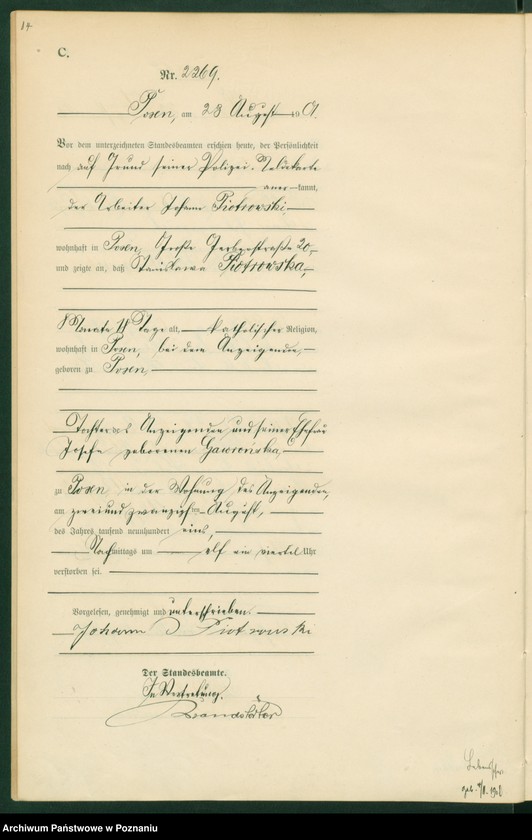 14
C.
Nr. 2269.
Posen, am 23 August 1901.
Vor dem unterzeichneten Standesbeamten erschien heute, der Persönlichkeit
nach auf Grund seiner Polizei-Meldekarte
anerkannt,
der Arbeiter Johann Piotrowski,
wohnhaft in Posen, Große Gerberstraße 20,
und zeigte an, daß Stanislawa Piotrowska,
8 Monate 14 Tage alt, katholischer Religion,
wohnhaft in Posen, bei dem Anzeigenden,
geboren zu Posen,
Tochter des Anzeigenden und seiner Ehefrau
Josefa geborenen Gawronska,
zu Posen in der Wohnung des Anzeigenden,
am zweiundzwanzigsten August,
des Jahres tausend neunhundert eins,
Nachmittags um elf ein viertel Uhr
verstorben sei.
Vorgelesen, genehmigt und unterschrieben.
Johann Piotrowski
Der Standesbeamte.
In Vertretung.
geb.
Archiwum Państwowe w Poznaniu